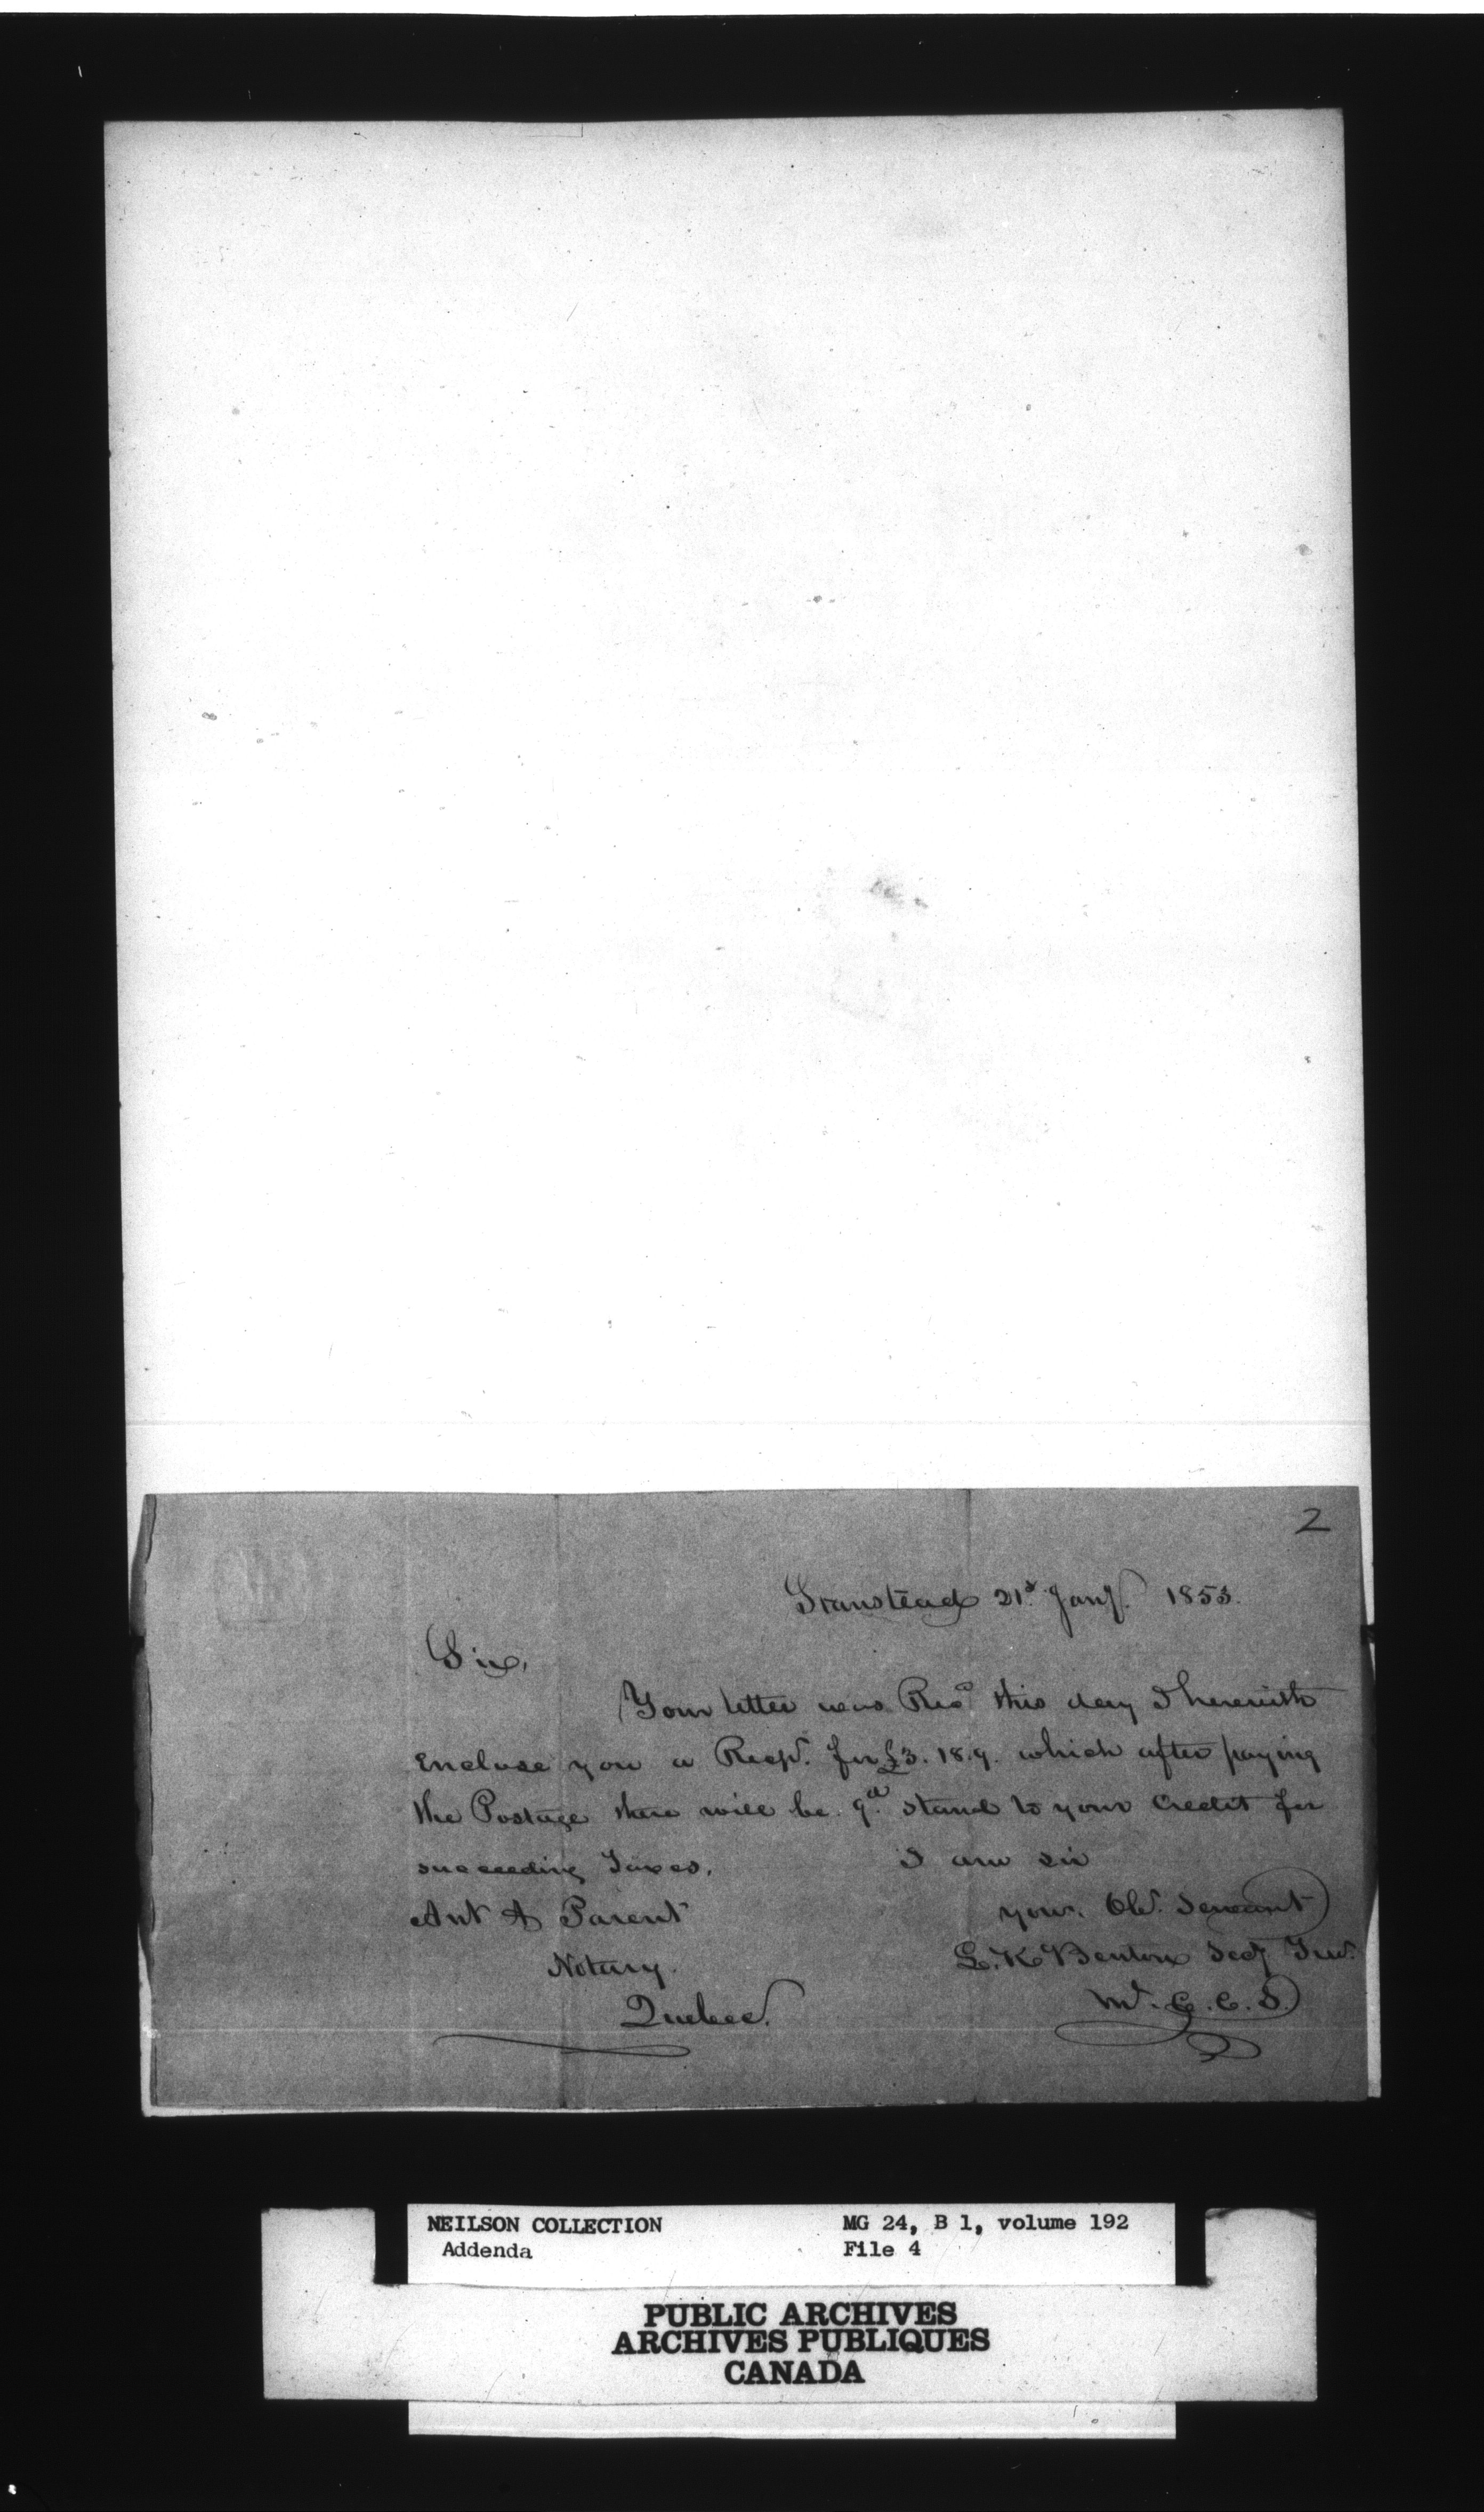 2
Stanstead 21st Jany. 1853.
Sir,
Your letter was Recd this day I herewith
Enclose you a Recpt. for £3. 18. 9. which after paying
the Postage there will be 9d. stand to your Credit for
succeeding Taxes. I am sir
Ant A Parent your. Obt. Servant
Notary. L. K Benton Secy Trer.
Quebec. M. C. C. S.
NEILSON COLLECTION MG 24, B 1, volume 192
Addenda File 4
PUBLIC ARCHIVES
ARCHIVES PUBLIQUES
CANADA